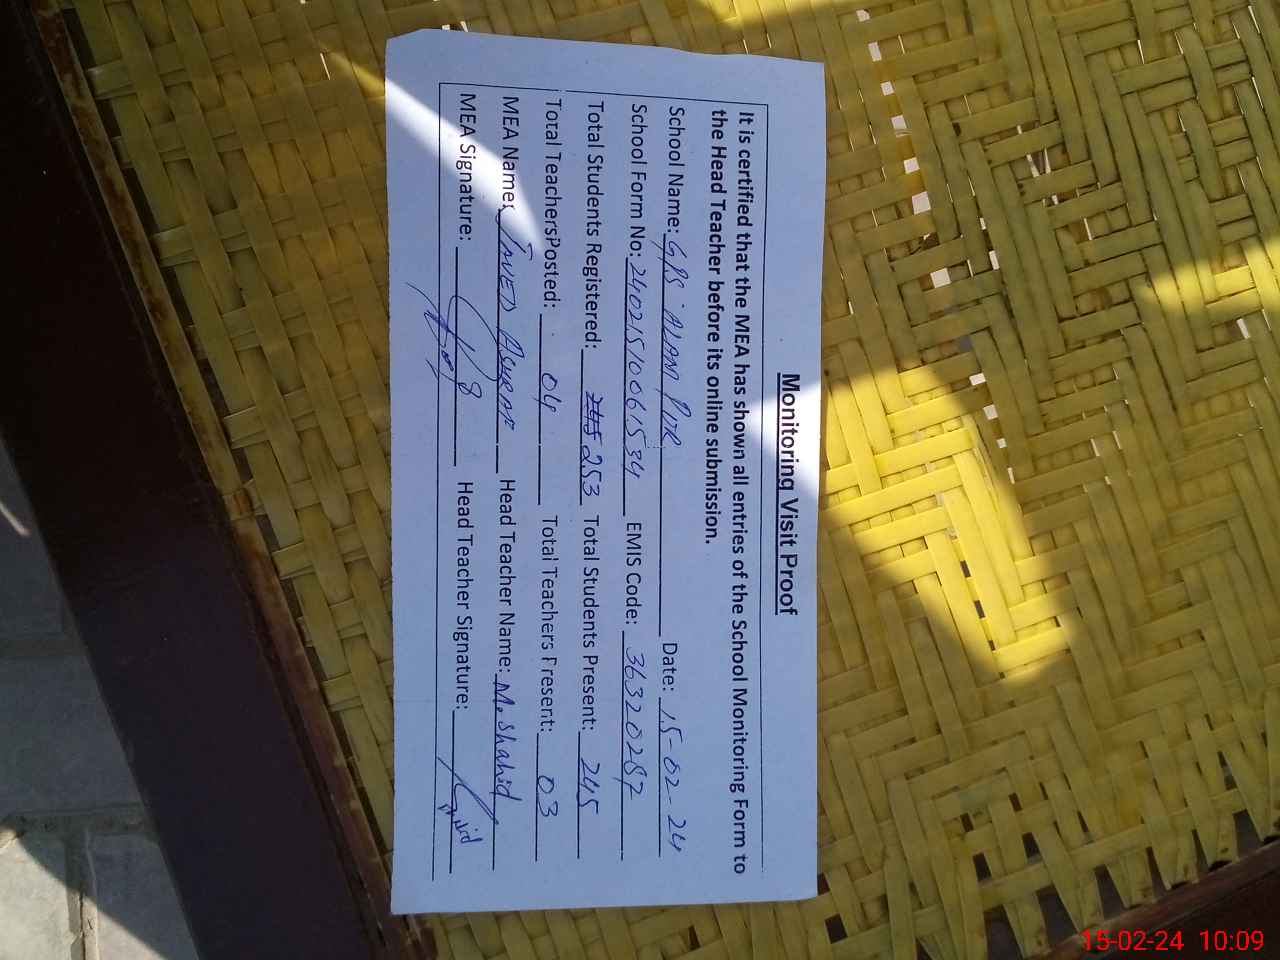 Monitoring Visit Proof
It is certified that the MEA has shown all entries of the School Monitoring Form to
the Head Teacher before its online submission.
School Name: GPS ALAM PUR Date: 15-02-24
School Form No: 24021510061534 EMIS Code: 36320287
Total Students Registered: 245 253 Total Students Present: 245
Total TeachersPosted: 04 Total Teachers Present: 03
MEA Name: JAVED ASHRAF Head Teacher Name: M. Shahid
MEA Signature: Head Teacher Signature:
15-02-24 10:09